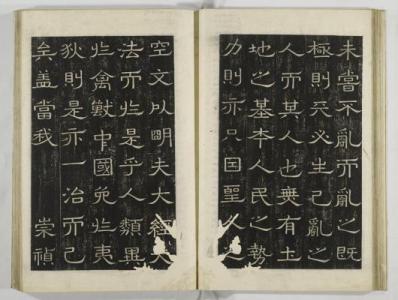 未嘗不亂而亂之既
極則天必生已亂之
人而其人也無有土
地之基本人民之勢
力則亦只因聖人之
空文以明夫大經大
法而於是乎人類異
於禽獸中國免於夷
狄則是亦一治而已
矣蓋當我 崇禎